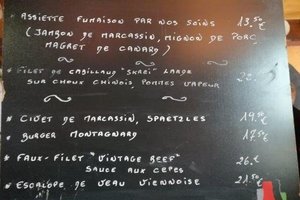 * ASSIETTE FUMAISON PAR NOS SOINS 13.50€
(JAMBON DE MARCASSIN, MIGNON DE PORC,
MAGRET DE CANARD)
* FILET DE CABILLAUD "SKREI" LARDÉ 22.
SUR CHOUX CHINOIS, POMMES VAPEUR
* CIVET DE MARCASSIN, SPAETZLES 19.50€
* BURGER MONTAGNARD 17.50€
* FAUX-FILET "VINTAGE BEEF" 26.€
SAUCE AUX CEPES
* ESCALOPE DE VEAU VIENNOISE 21.50€